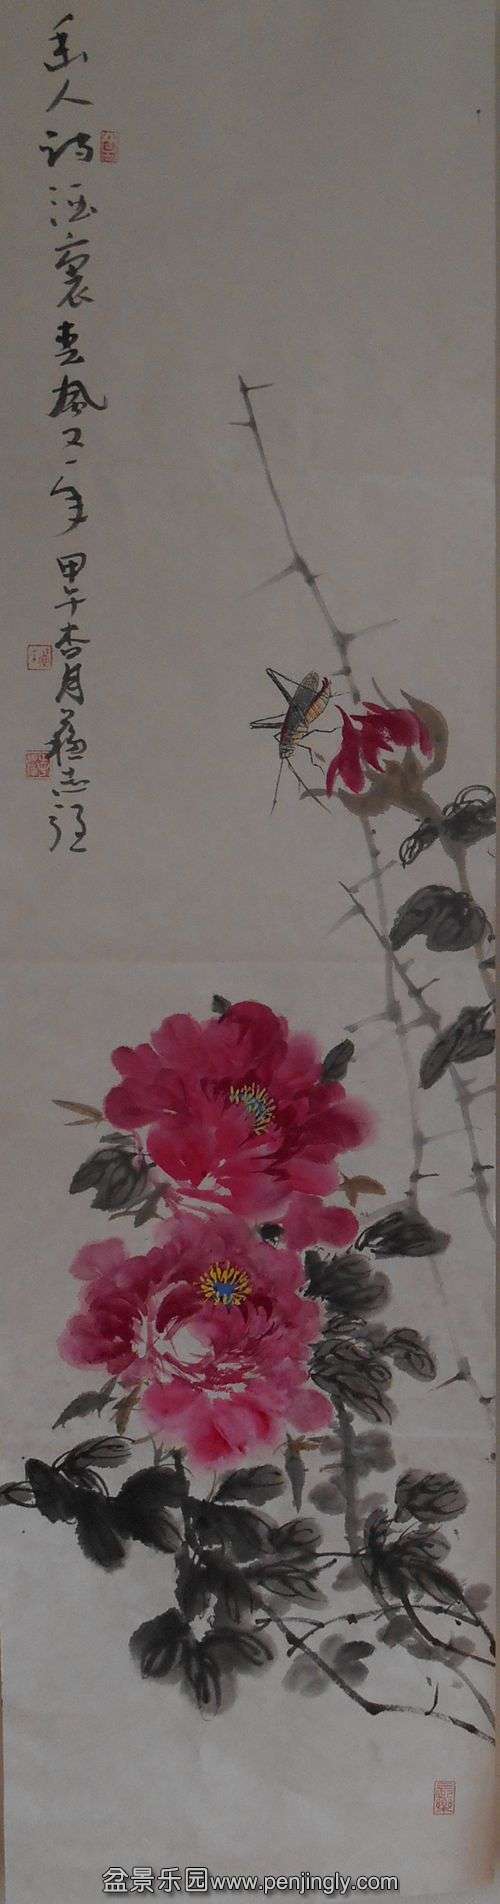 幽人詩酒裏春風又一年甲午杏月蘇志強
盆景乐园www.penjingly.com